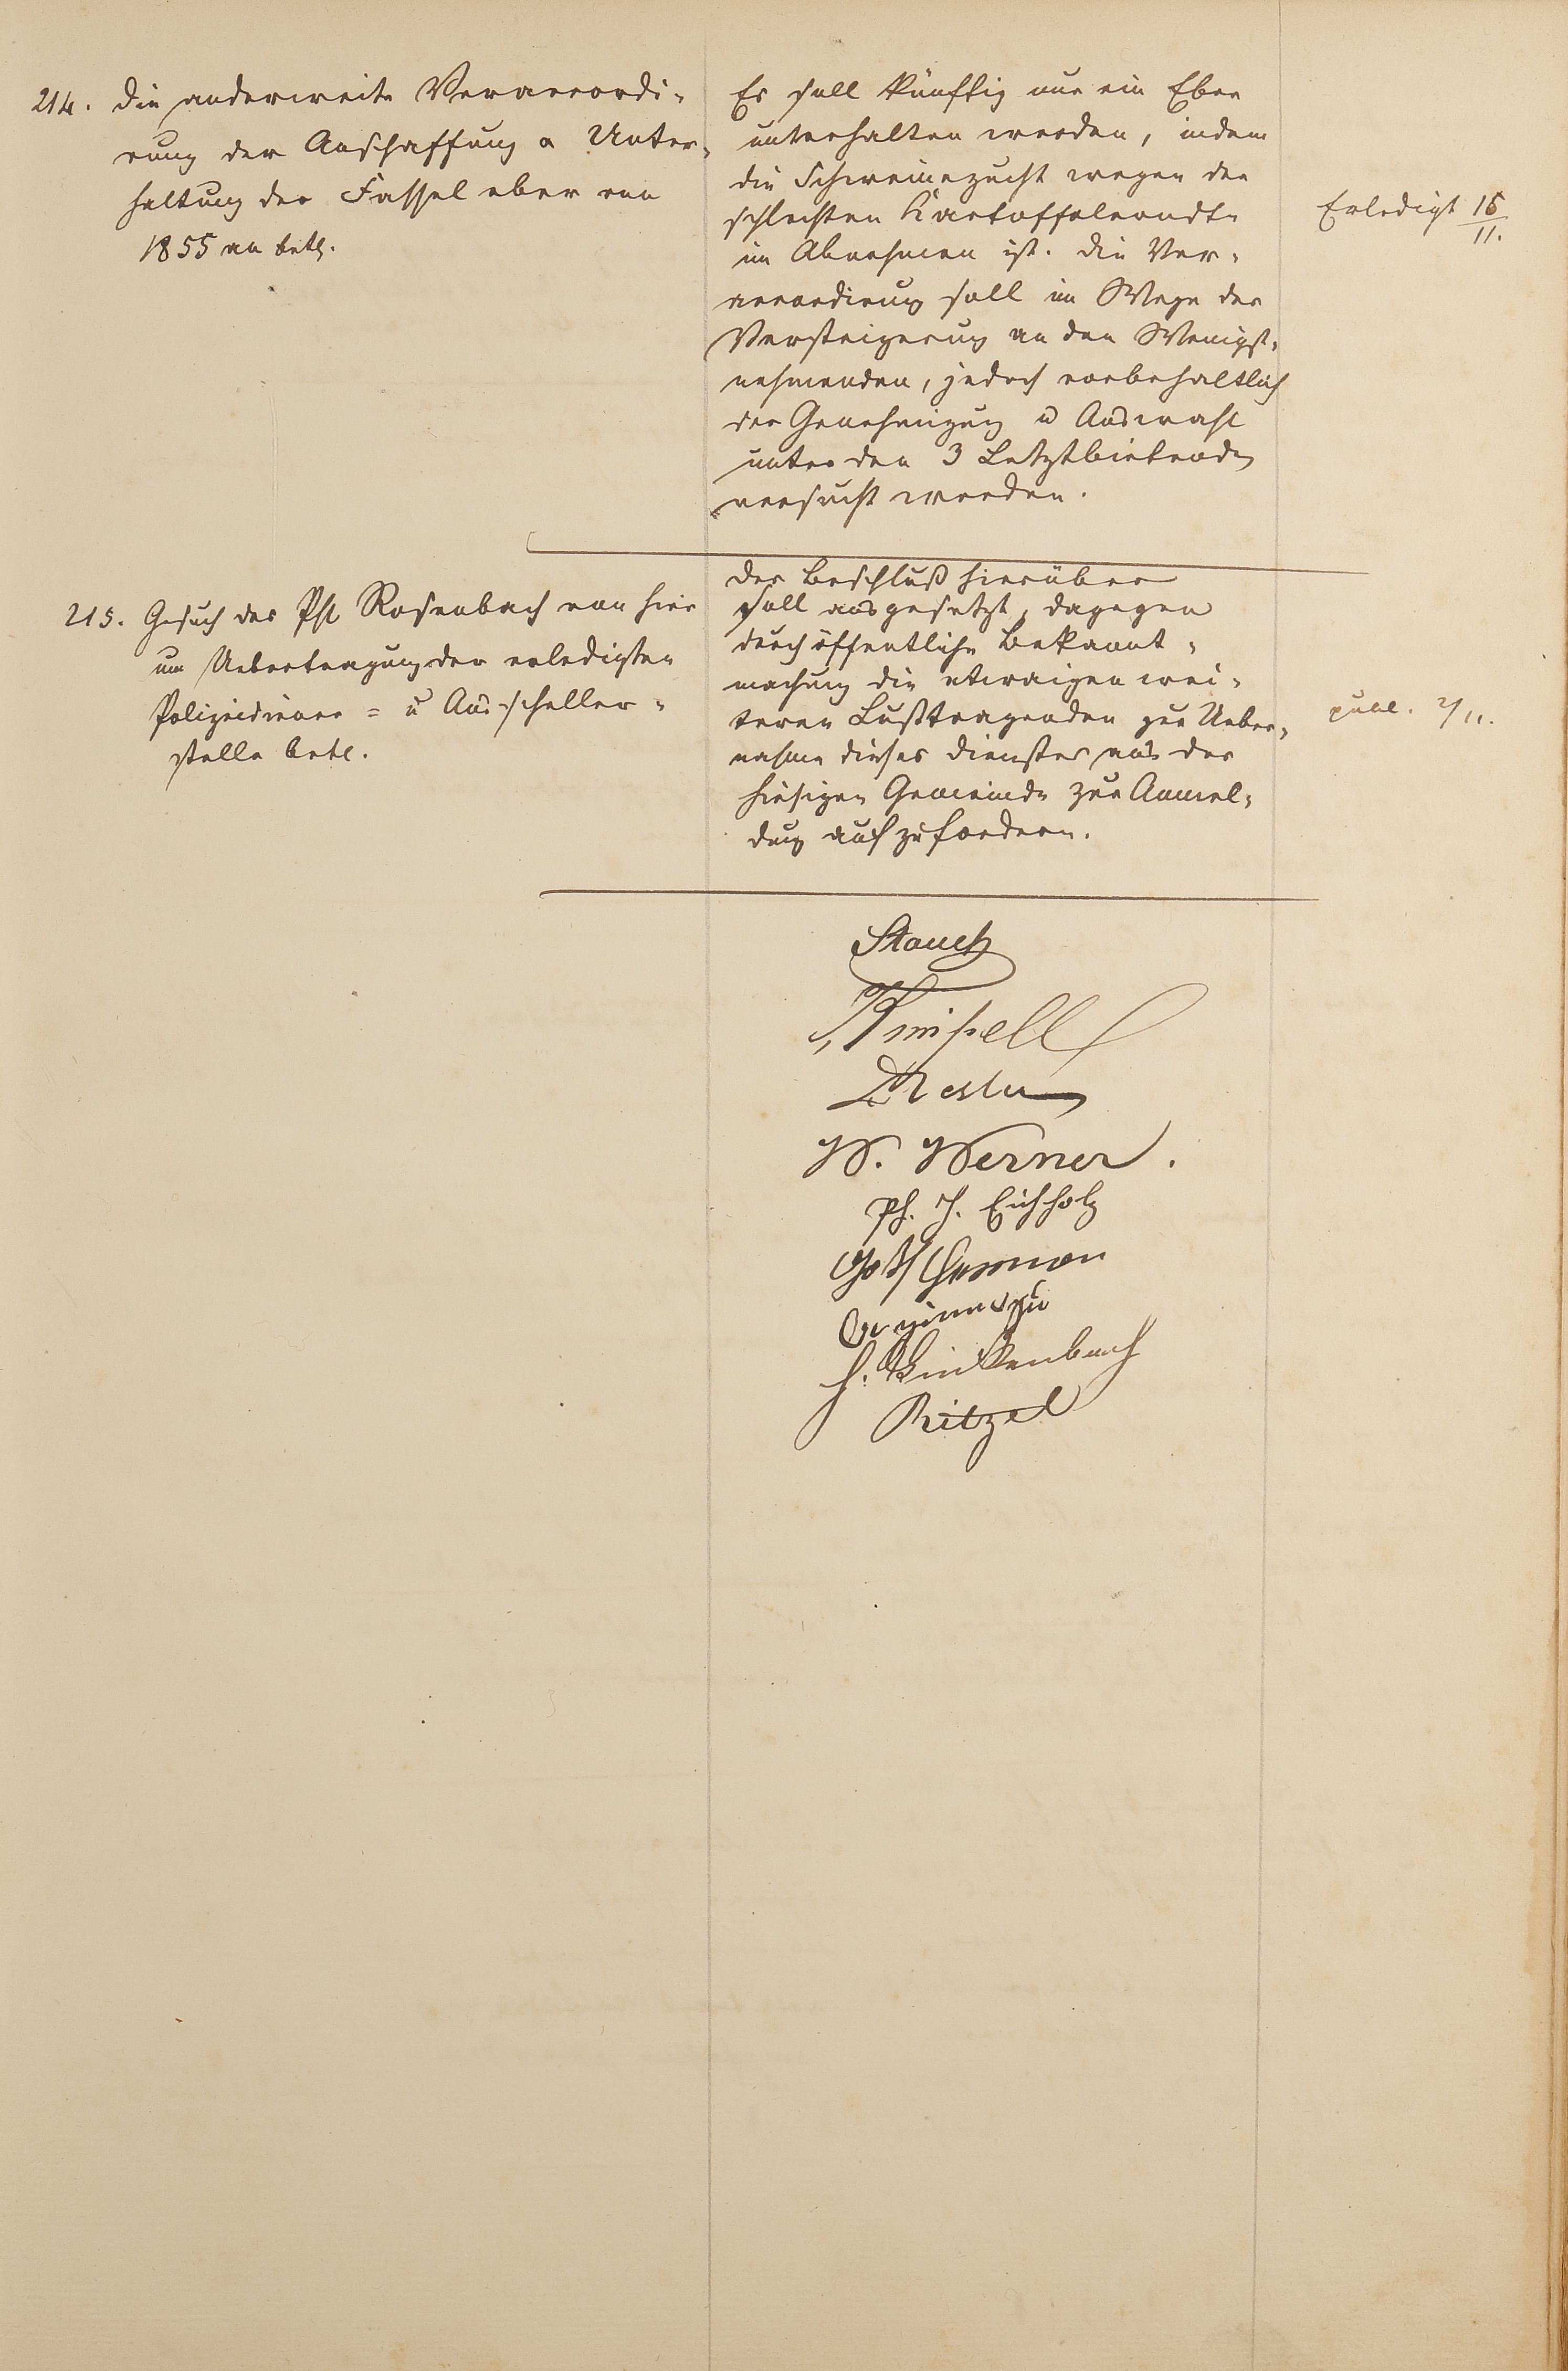 214. Die anderweite Veraccordi-
rung der Anschaffung u Unter-
haltung der Fassel eber von
1855 an betr.
Es soll künftig nur ein Eber
unterhalten werden, indem
die Schweinezucht wegen der
schlechten Kartoffelerndte
im Abnehmen ist. Die Ver-
accordirung soll im Wege der
Versteigerung an den Wenigst-
nehmenden, jedoch vorbehaltlich
der Genehmigung u Auswahl
unter den 3 Letztbietenden
versucht werden.
Erledigt 15/11.
215. Gesuch des Phl Rosenbach von hier
um Uebertragung der erledigten
Polizeidiener- u Ausscheller-
stelle betr.
Der Beschluß hierüber
soll ausgesetzt, dagegen
durch öffentliche Bekannt-
machung die etwaigen wei-
teren Lusttragenden zur Ueber-
nahme dieses Dienstes aus der
hiesigen Gemeinde zur Anmel-
dung aufzufordern.
publ. 2/11.
Stauch
Knipell
W. Werner.
Ph. J. Eichholz
H. Binkenbach
Ritzel